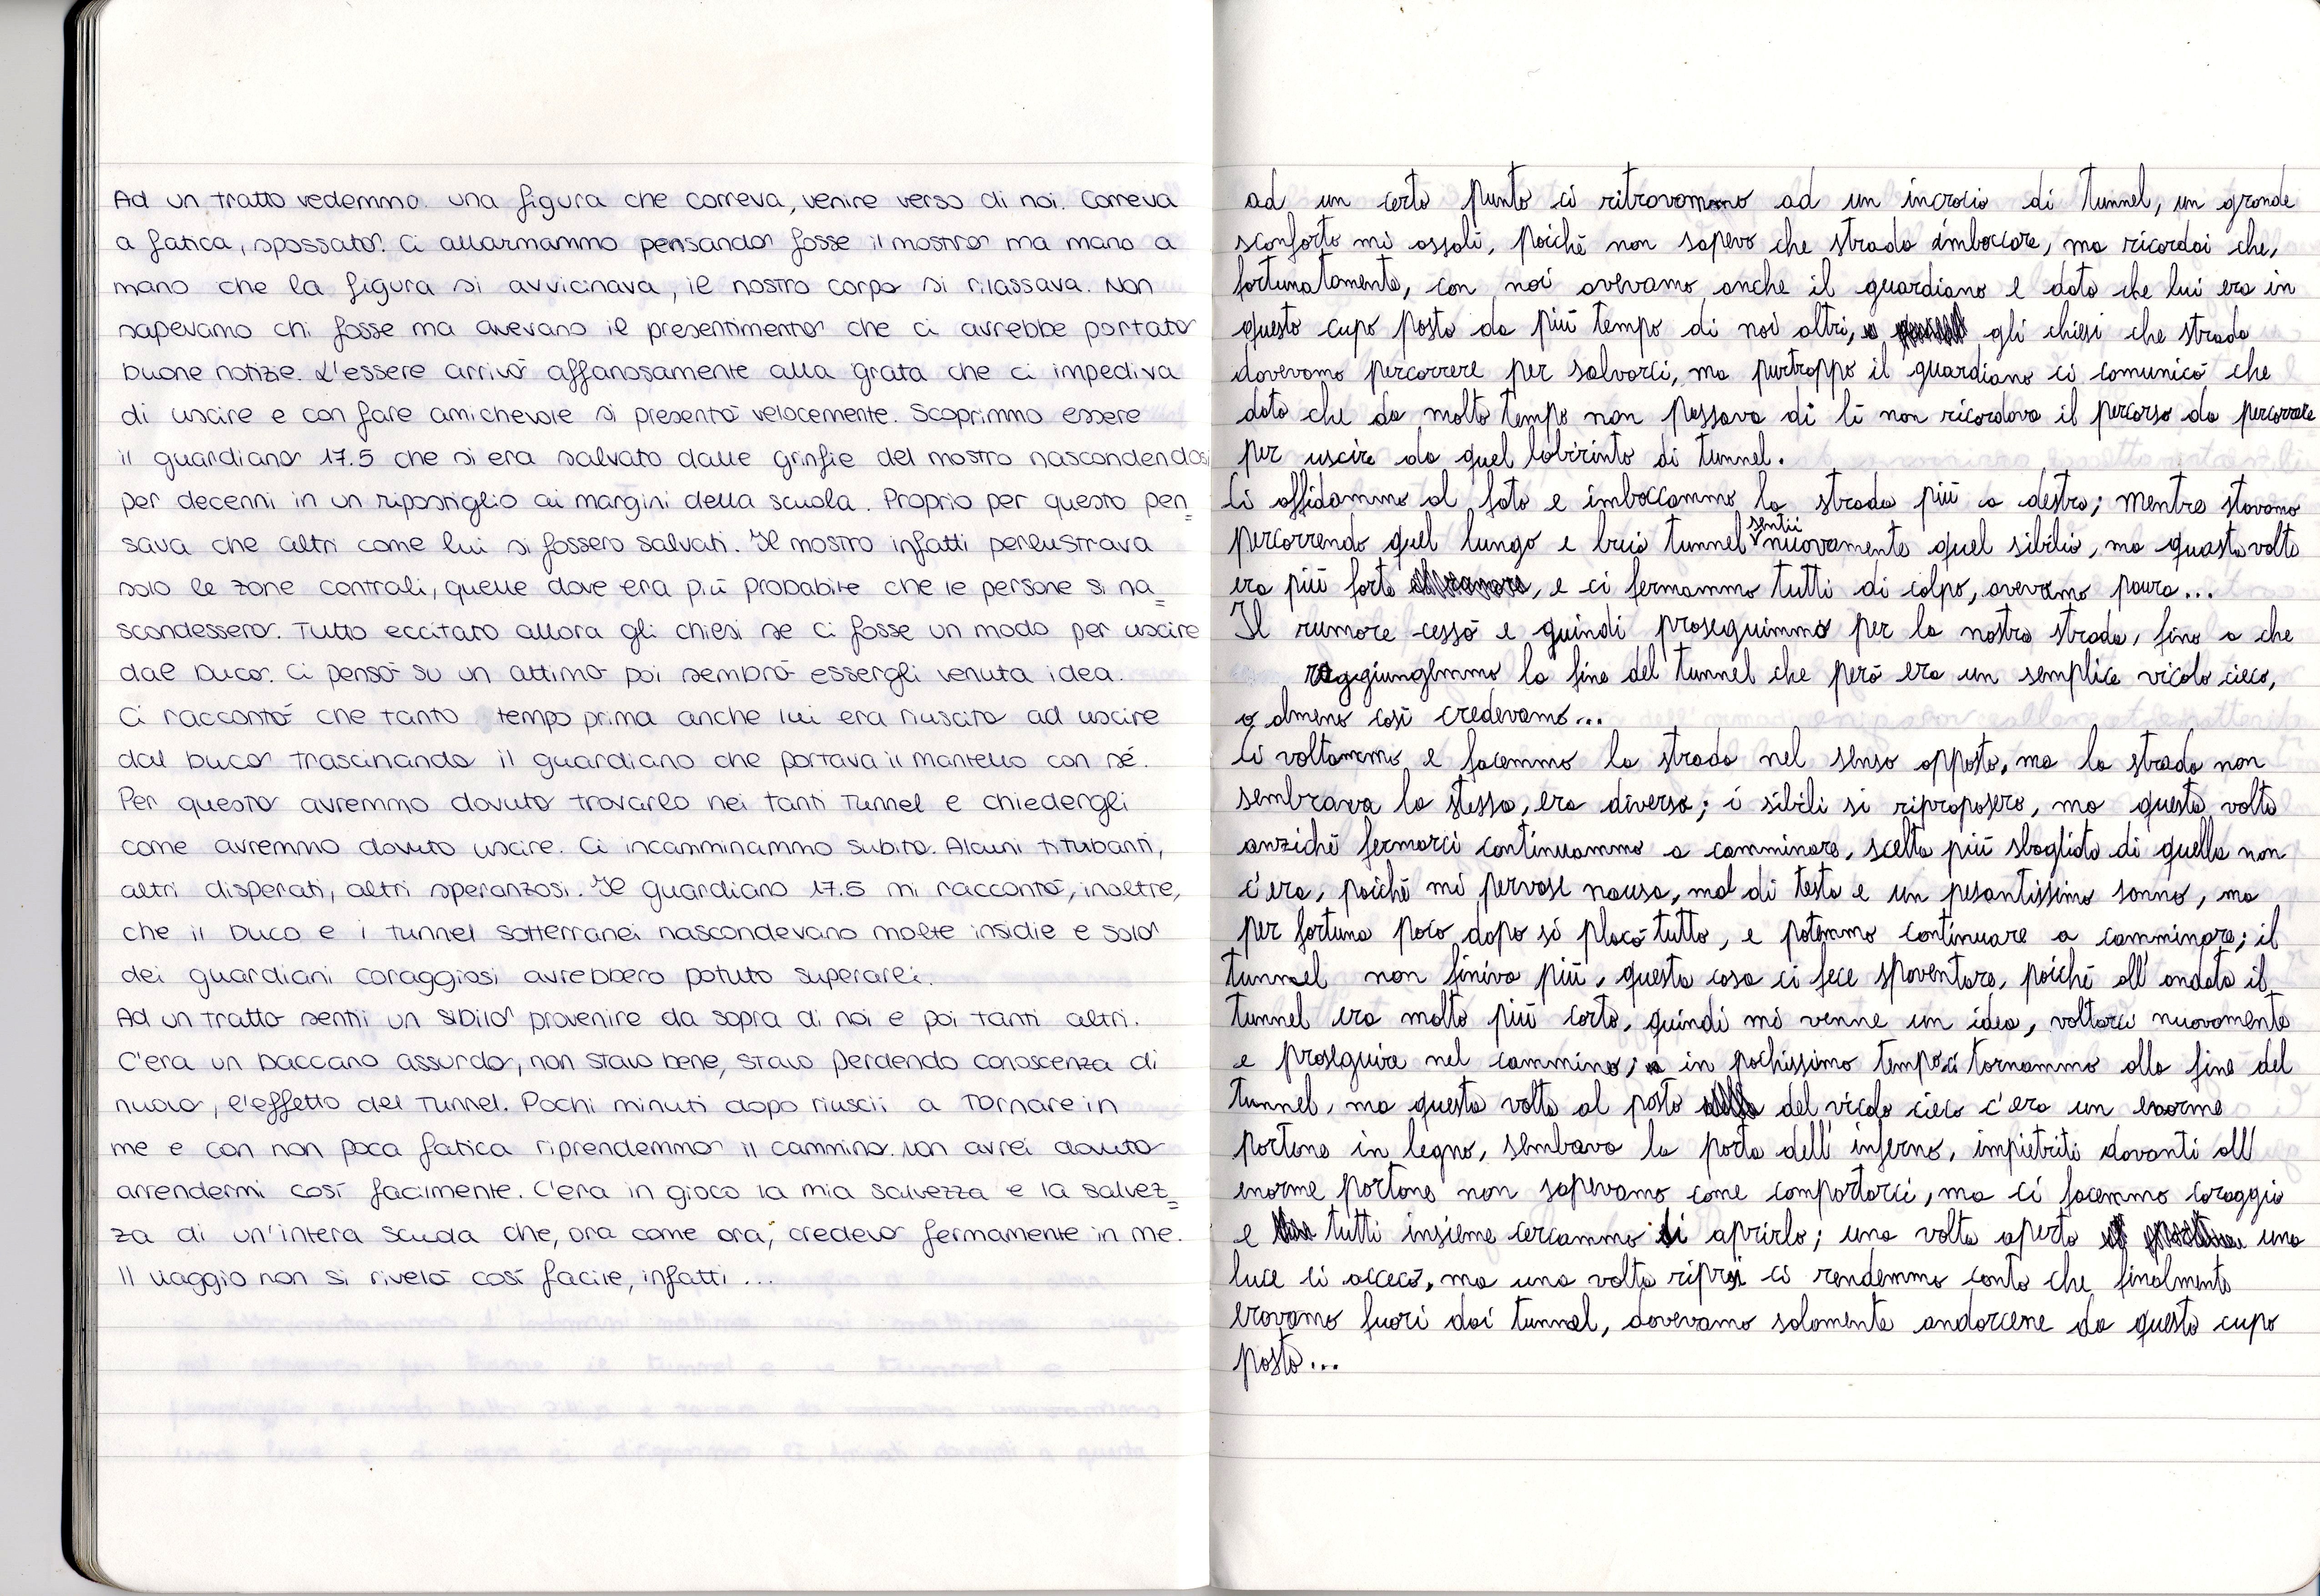 Ad un tratto vedemmo una figura che correva, venire verso di noi. Correva
a fatica, spossato. Ci allarmammo pensando fosse il mostro ma mano a
mano che la figura si avvicinava, il nostro corpo si rilassava. Non
sapevamo chi fosse ma avevano il presentimento che ci avrebbe portato
buone notizie. L'essere arrivò affanosamente alla grata che ci impediva
di uscire e con fare amichevole si presentò velocemente. Scoprimmo essere
il guardiano 17.5 che si era salvato dalle grinfie del mostro nascondendosi
per decenni in un ripostiglio ai margini della scuola. Proprio per questo pen=
sava che altri come lui si fossero salvati. Il mostro infatti perlustrava
solo le zone centrali, quelle dove era più probabile che le persone si na=
scondessero. Tutto eccitato allora gli chiesi se ci fosse un modo per uscire
dal buco. Ci pensò su un attimo poi sembrò essergli venuta idea.
Ci raccontò che tanto tempo prima anche lui era riuscito ad uscire
dal buco trascinando il guardiano che portava il mantello con sé.
Per questo avremmo dovuto trovarlo nei tanti tunnel e chiedergli
come avremmo dovuto uscire. Ci incamminammo subito. Alcuni titubanti,
altri disperati, altri speranzosi. Il guardiano 17.5 mi raccontò, inoltre,
che il buco e i tunnel sotterranei nascondevano molte insidie e solo
dei guardiani coraggiosi avrebbero potuto superarli.
Ad un tratto sentii un sibilo provenire da sopra di noi e poi tanti altri.
C'era un baccano assurdo, non stavo bene, stavo perdendo conoscenza di
nuovo, l'effetto del tunnel. Pochi minuti dopo riuscii a tornare in
me e con non poca fatica riprendemmo il cammino. Non avrei dovuto
arrendermi così facilmente. C'era in gioco la mia salvezza e la salvez=
za di un'intera scuola che, ora come ora, credevo fermamente in me.
Il viaggio non si rivelò così facile, infatti...
ad un certo punto ci ritrovammo ad un incrocio di tunnel, un grande
sconforto mi assalì, poiché non sapevo che strada imboccare, ma ricordai che,
fortunatamente, con noi avevamo anche il guardiano e dato che lui era in
questo cupo posto da più tempo di noi altri, gli chiesi che strada
dovevamo percorrere per salvarci, ma purtroppo il guardiano ci comunicò che
dato che da molto tempo non passava di lì non ricordava il percorso da percorrere
per uscire da quel labirinto di tunnel.
Ci affidammo al fato e imboccammo la strada più a destra; mentre stavamo
percorrendo quel lungo e buio tunnel sentii nuovamente quel sibilio, ma questa volta
era più forte, e ci fermammo tutti di colpo, avevamo paura...
Il rumore cessò e quindi proseguimmo per la nostra strada, fino a che
raggiungemmo la fine del tunnel che però era un semplice vicolo cieco,
o almeno così credevamo...
Ci voltammo e facemmo la strada nel senso opposto, ma la strada non
sembrava la stessa, era diversa; i sibili si riproposero, ma questa volta
anziché fermarci continuammo a camminare, scelta più sbagliata di quella non
c'era, poiché mi pervase nausa, mal di testa e un pesantissimo sonno, ma
per fortuna poco dopo si placò tutto, e potemmo continuare a camminare; il
tunnel non finiva più, questa cosa ci fece spaventare, poiché all'andata il
tunnel era molto più corto, quindi mi venne un idea, voltarci nuovamente
e proseguire nel cammino; in pochissimo tempo ci tornammo alla fine del
tunnel, ma questa volta al posto del vicolo cieco c'era un enorme
portone in legno, sembava la porta dell'inferno, impietriti davanti all'
enorme portone non sapevamo come comportarci, ma ci facemmo coraggio
e tutti insieme cercammo di aprirlo; una volta aperto una
luce ci accecò, ma una volta ripresi ci rendemmo conto che finalmente
eravamo fuori dai tunnel, dovevamo solamente andarcene da questo cupo
posto...